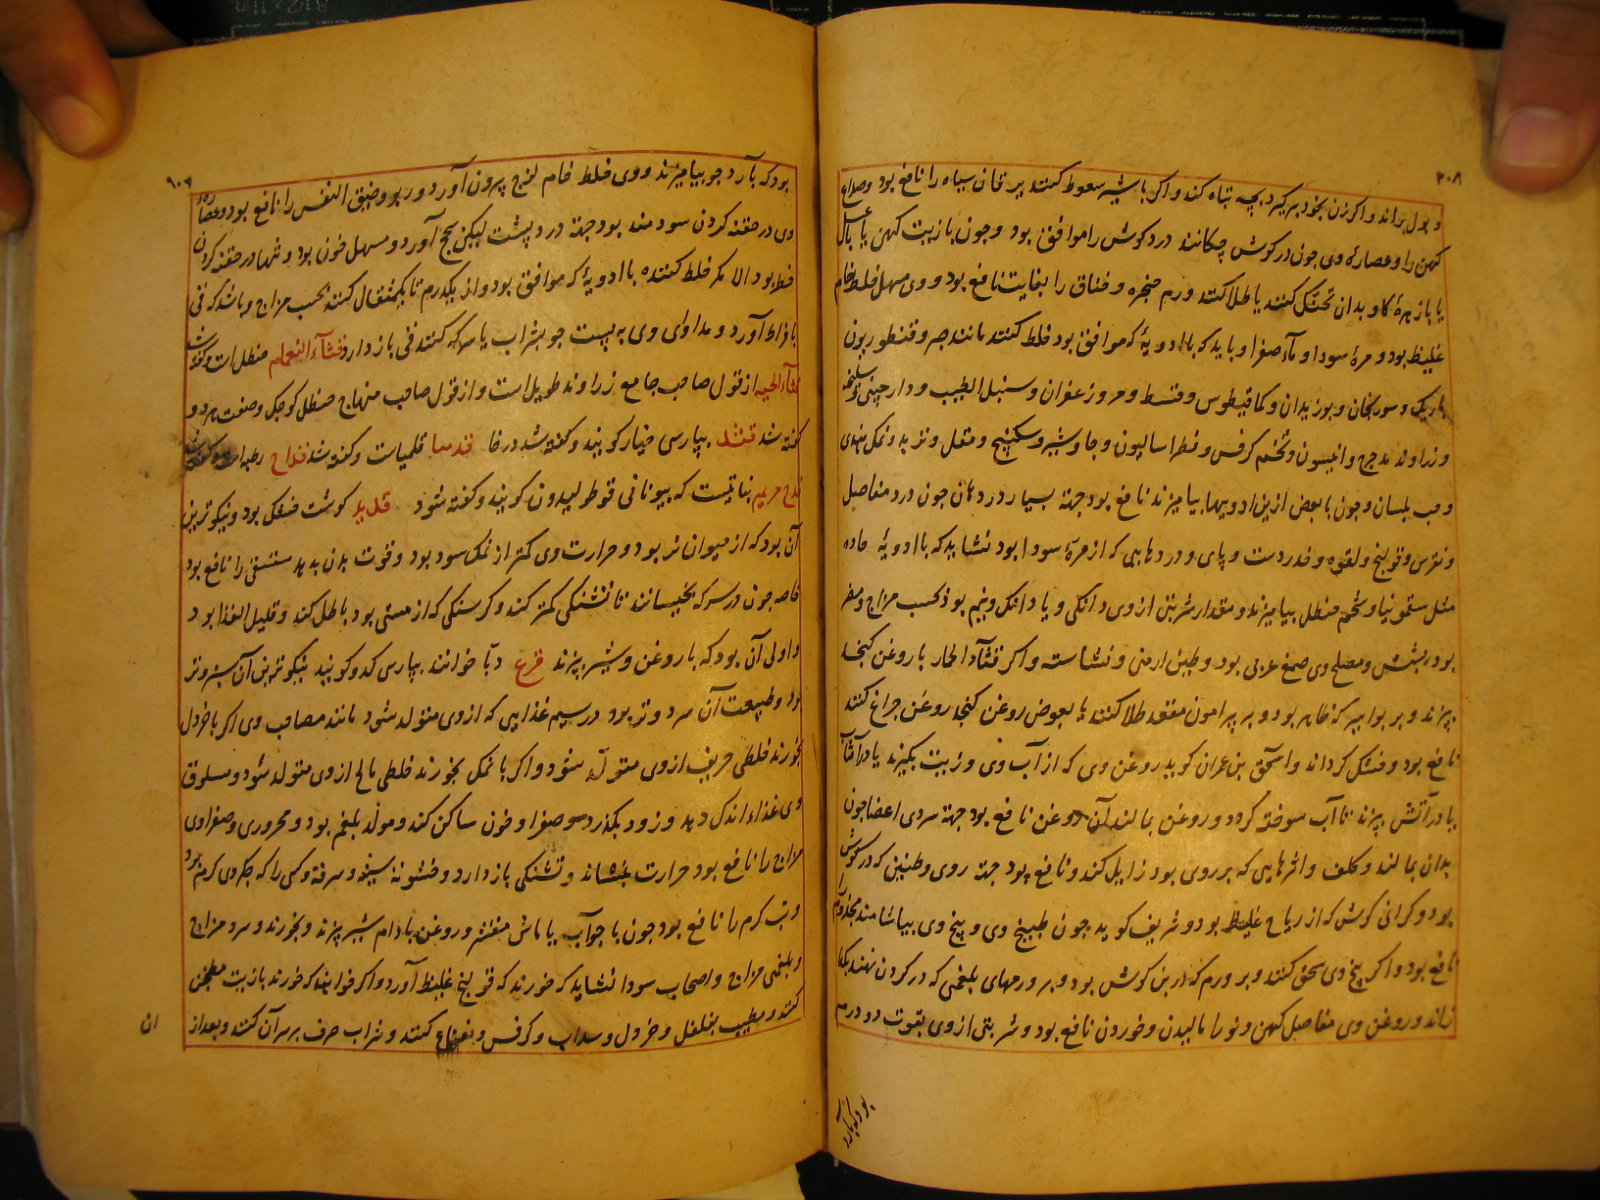 ۳۰۸
و بول براند و اکر زن بخود برکیرد بچه تباه کند و اکر با شیر سعوط کنند یرقان سیاه را نافع بود و صداع
کهن را و عصارهٔ وی جون در کوش چکانند درد کوش را موافق بود وجون با زیت کهن یا عسل
یا با زهرهٔ کاو بدان تحنک کنند یا طلا کنند ورم حنجره و خناق را بغایت نافع بود و وی مسهل خلط خام
غلیظ بود و مرهٔ سودا و مآء صفرا و باید که با ادویهٔ که موافق بود خلط کنند مانند صبر و قنطوریون
باریک و سورنجان و بوزیدان و کمافیطوس و قسط و مر و زعفران و سنبل الطیب و دارچینی و سلیخه
و زراوند مدحرج و انیسون و تخم کرفس و فطراسالیون و جاوشیر و سکبینج و مقل و تربد و نمک هندی
و حب بلسان وجون با بعض ازین ادویها بیامیزند نافع بود جهة بسیار دردهان جون درد مفاصل
و نقرس و قولنج و لقوه و خدر دست و پای و دردهایی که از مرهٔ سودا بود نشاید که با ادویهٔ حاده
مثل سقمونیا و شحم حنظل بیامیزند و مقدار شربتی از وی دانکی و یا دانک و نیم بود بحسب مزاج و مضر
بود بمثش و مصلح وی صمغ عربی بود و طین ارمنی و نشاسته و اکر قثآء الحمار با روغن کنجد
بپزند و بر بواسیر که ظاهر بود و بر پیرامون مقعد طلا کنند یا بعوض روغن کنجد روغن چراغ کنند
نافع بود و خشک کرداند و اسحق بن عمران کوید روغن وی که از آب وی و زیت بکیرند یا در آفتاب
یا در آتش بپزند تا آب سوخته کردد و روغن بماند آن روغن نافع بود جهة سردی اعضا جون
بدان بمالند و کلف و اثرهایی که بر روی بود زایل کند و نافع بود جهة روی و طنین که در کوش
بود و کرانی کوش که از ریاح غلیظ بود و شریف کوید جون طبیخ وی و بیخ وی بیاشامند مجذوم را
نافع بود و اکر بیخ وی سحق کنند و بر ورم که در بن کوش بود و بر ورمهای بلغمی که در کردن نهند بکدازاند
و روغن وی مفاصل کهن و نو را مالیدن و خوردن نافع بود و شربتی از وی بقوت دو درم
بود که بارد
بود که بآرد جو بیامیزند و وی خلط خام لزج بیرون آورد و ربو و ضیق النفس را نافع بود و عصارهٔ
وی در حقنه کردن سودمند بود جهة درد پشت لیکن سحج آورد و مسهل خون بود و تنها در حقنه کردن
خطر بود الا مکر خلط کننده با ادویهٔ که موافق بود و از یکدرم تا یکمثقال کنند بحسب مزاج و باشد که قی
بافراط آورد و مداوای وی به پست جو بشراب یا سرکه کنند قی باز دارد قثآء النعام حنظل است و کفته شد
قثآء الحیه از قول صاحب جامع زراوند طویل است و از قول صاحب منهاج حنظل کوجک و صفت هر دو
کفته شد قثد بپارسی خیار کویند و کفته شد در خا قدمیا قلمیاست و کفته شد قداح رطبه است و کفته شد
قدح مریم نباتیست که بیونانی قوطولیدون کویند و کفته شود قدید کوشت خشک بود و نیکوترین
آن بود که از حیوان تر بود و حرارت وی کمتر از نمک سود بود و قوت بدن بدهد مستسقی را نافع بود
خاصه جون در سرکه بخیسانند تا تشنکی کمتر کند و کرسنکی که از مستی بود باطل کند و قلیل الغذا بود
و اولی آن بود که با روغن و شیر بپزند قرع دبا خوانند بپارسی کدو کویند نیکوترین آن سبز و تر
بود و طبیعت آن سرد و تر بود در سیم غذایی که از وی متولد شود مانند مصاحب وی اکر با خردل
بخورند خلطی حریف از وی متولد شود و اکر با نمک بخورند خلطی مالح از وی متولد شود و مسلوق
وی غذاء اندک دهد و زود بکذرد و صفرا و خون ساکن کند و مولد بلغم بود و محروری و صفراوی
مزاج را نافع بود حرارت بنشاند و تشنکی باز دارد و خشونة سینه و سرفه و کسی را که جکر وی کرم بود
و تب کرم را نافع بود جون با جوآب یا ماش مقشر و روغن بادام شیر بپزند و بخورند و سرد مزاج
و بلغمی مزاج و اصحاب سودا نشاید که خورند که قولنج غلیظ آورد و اکر خواهند که خورند با زیت مطجن
کنند و مطیب بفلفل و خردل و سداب و کرفس و نعناع کنند و شراب صرف بر سر آن کنند و بعد از
ان